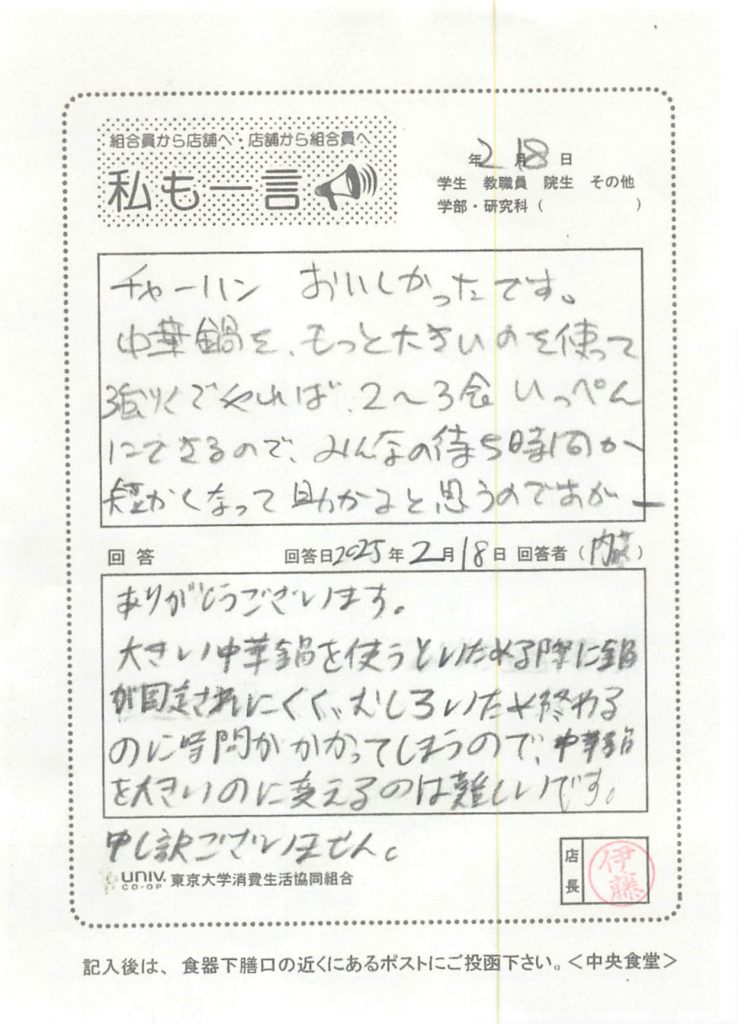 組合員から店舗へ・店舗から組合員へ
私も一言
年2月18日
学生 教職員 院生 その他
学部・研究科( )
チャーハン おいしかったです。
中華鍋を、もっと大きいのを使って
強火でやれば、2〜3食 いっぺん
にできるので、みんなの待ち時間が
短かくなって助かると思うのですがー
回答 回答日2025年2月18日 回答者(内藤)
ありがとうございます。
大きい中華鍋を使うといためる際に鍋
が固定されにくく、むしろいため終わる
のに時間がかかってしまうので、中華鍋
を大きいのに変えるのは難しいです。
申し訳ございません。
UNIV. CO-OP 東京大学消費生活協同組合
店長 伊藤
記入後は、食器下膳口の近くにあるポストにご投函下さい。<中央食堂>